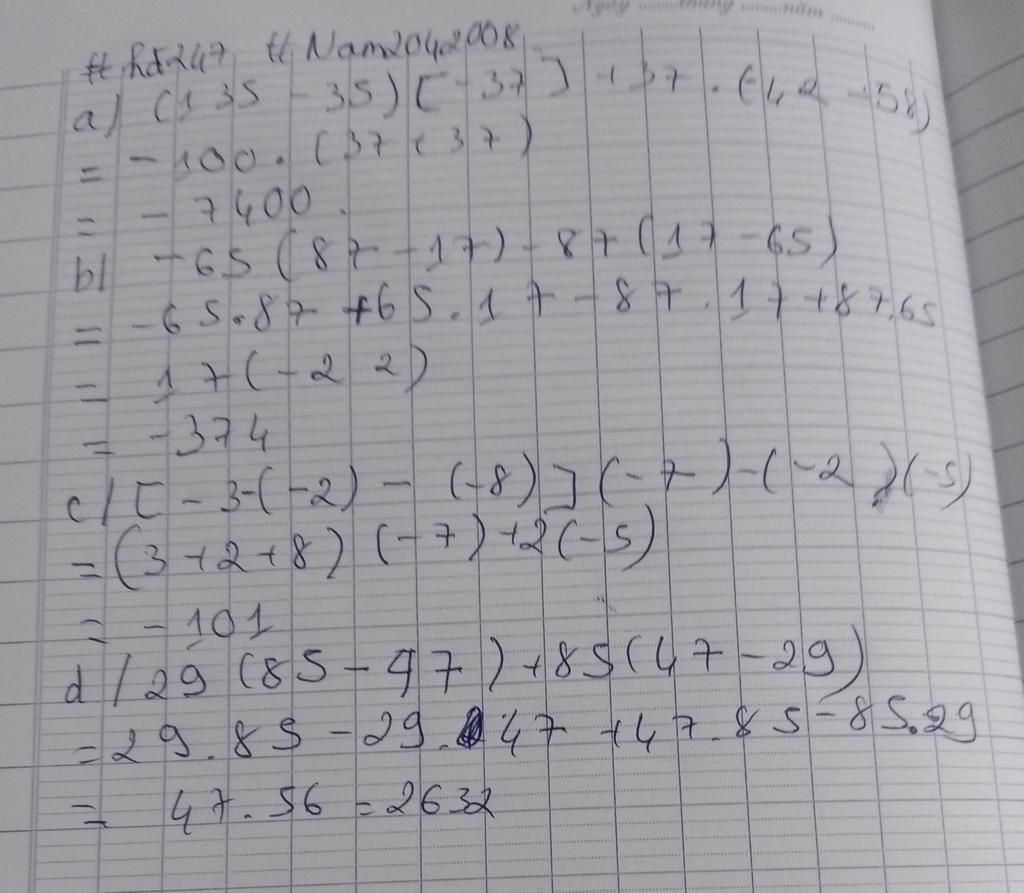 Ngày ......... tháng ......... năm .........
# hdt247 # Nam2042008
a) (135 - 35) [-37] + 37 . (-42 - 58)
= -100 . (37 + 37)
= - 7400.
b/ -65 (87 - 17) - 87 (17 - 65)
= -65.87 + 65.17 - 87.17 + 87.65
= 17 (-22)
= -374
c/ [-3-(-2) - (-8)] (-7) - (-2) (-5)
= (3 + 2 + 8) (-7) + 2(-5)
= - 101
d/ 29 (85 - 47) + 85 (47 - 29)
= 29.85 - 29.47 + 47.85 - 85.29
= 47.56 = 2632